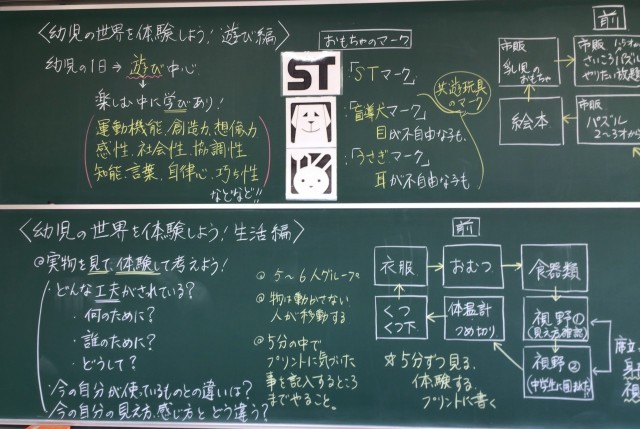 〈幼児の世界を体験しよう！遊び編〉
幼児の1日→遊び中心
↓
楽しむ中に学びあり！
運動機能、創造力、想像力
感性、社会性、協調性
知能、言葉、自律心、巧ち性
などなど!!
おもちゃのマーク
ST
「STマーク」
「盲導犬マーク」
目が不自由な子も、
「うさぎマーク」
耳が不自由な子も
共遊玩具
のマーク
前
市販
乳児の
おもちゃ
市販
さいころパズル
やりたい放題
絵本
市販
パズル
2〜3オ
〈幼児の世界を体験しよう！生活編〉
◎実物を見て、体験して考えよう！
・どんな工夫がされている？
・何のために？
・誰のために？
・どうして？
・今の自分が使っているものとの違いは？
今の自分の見え方、感じ方とどう違う？
◎5〜6人グループ
◎物は動かさない
人が移動する
◎5分の中で
プリントに気づいた
事を記入するところ
までやること。
前
衣服
おむつ
食器類
くつ
くつ下
体温計
つめ切り
視野①
(見え方確認)
視野②
☆5分ずつ見る、
体験する、
プリントに書く